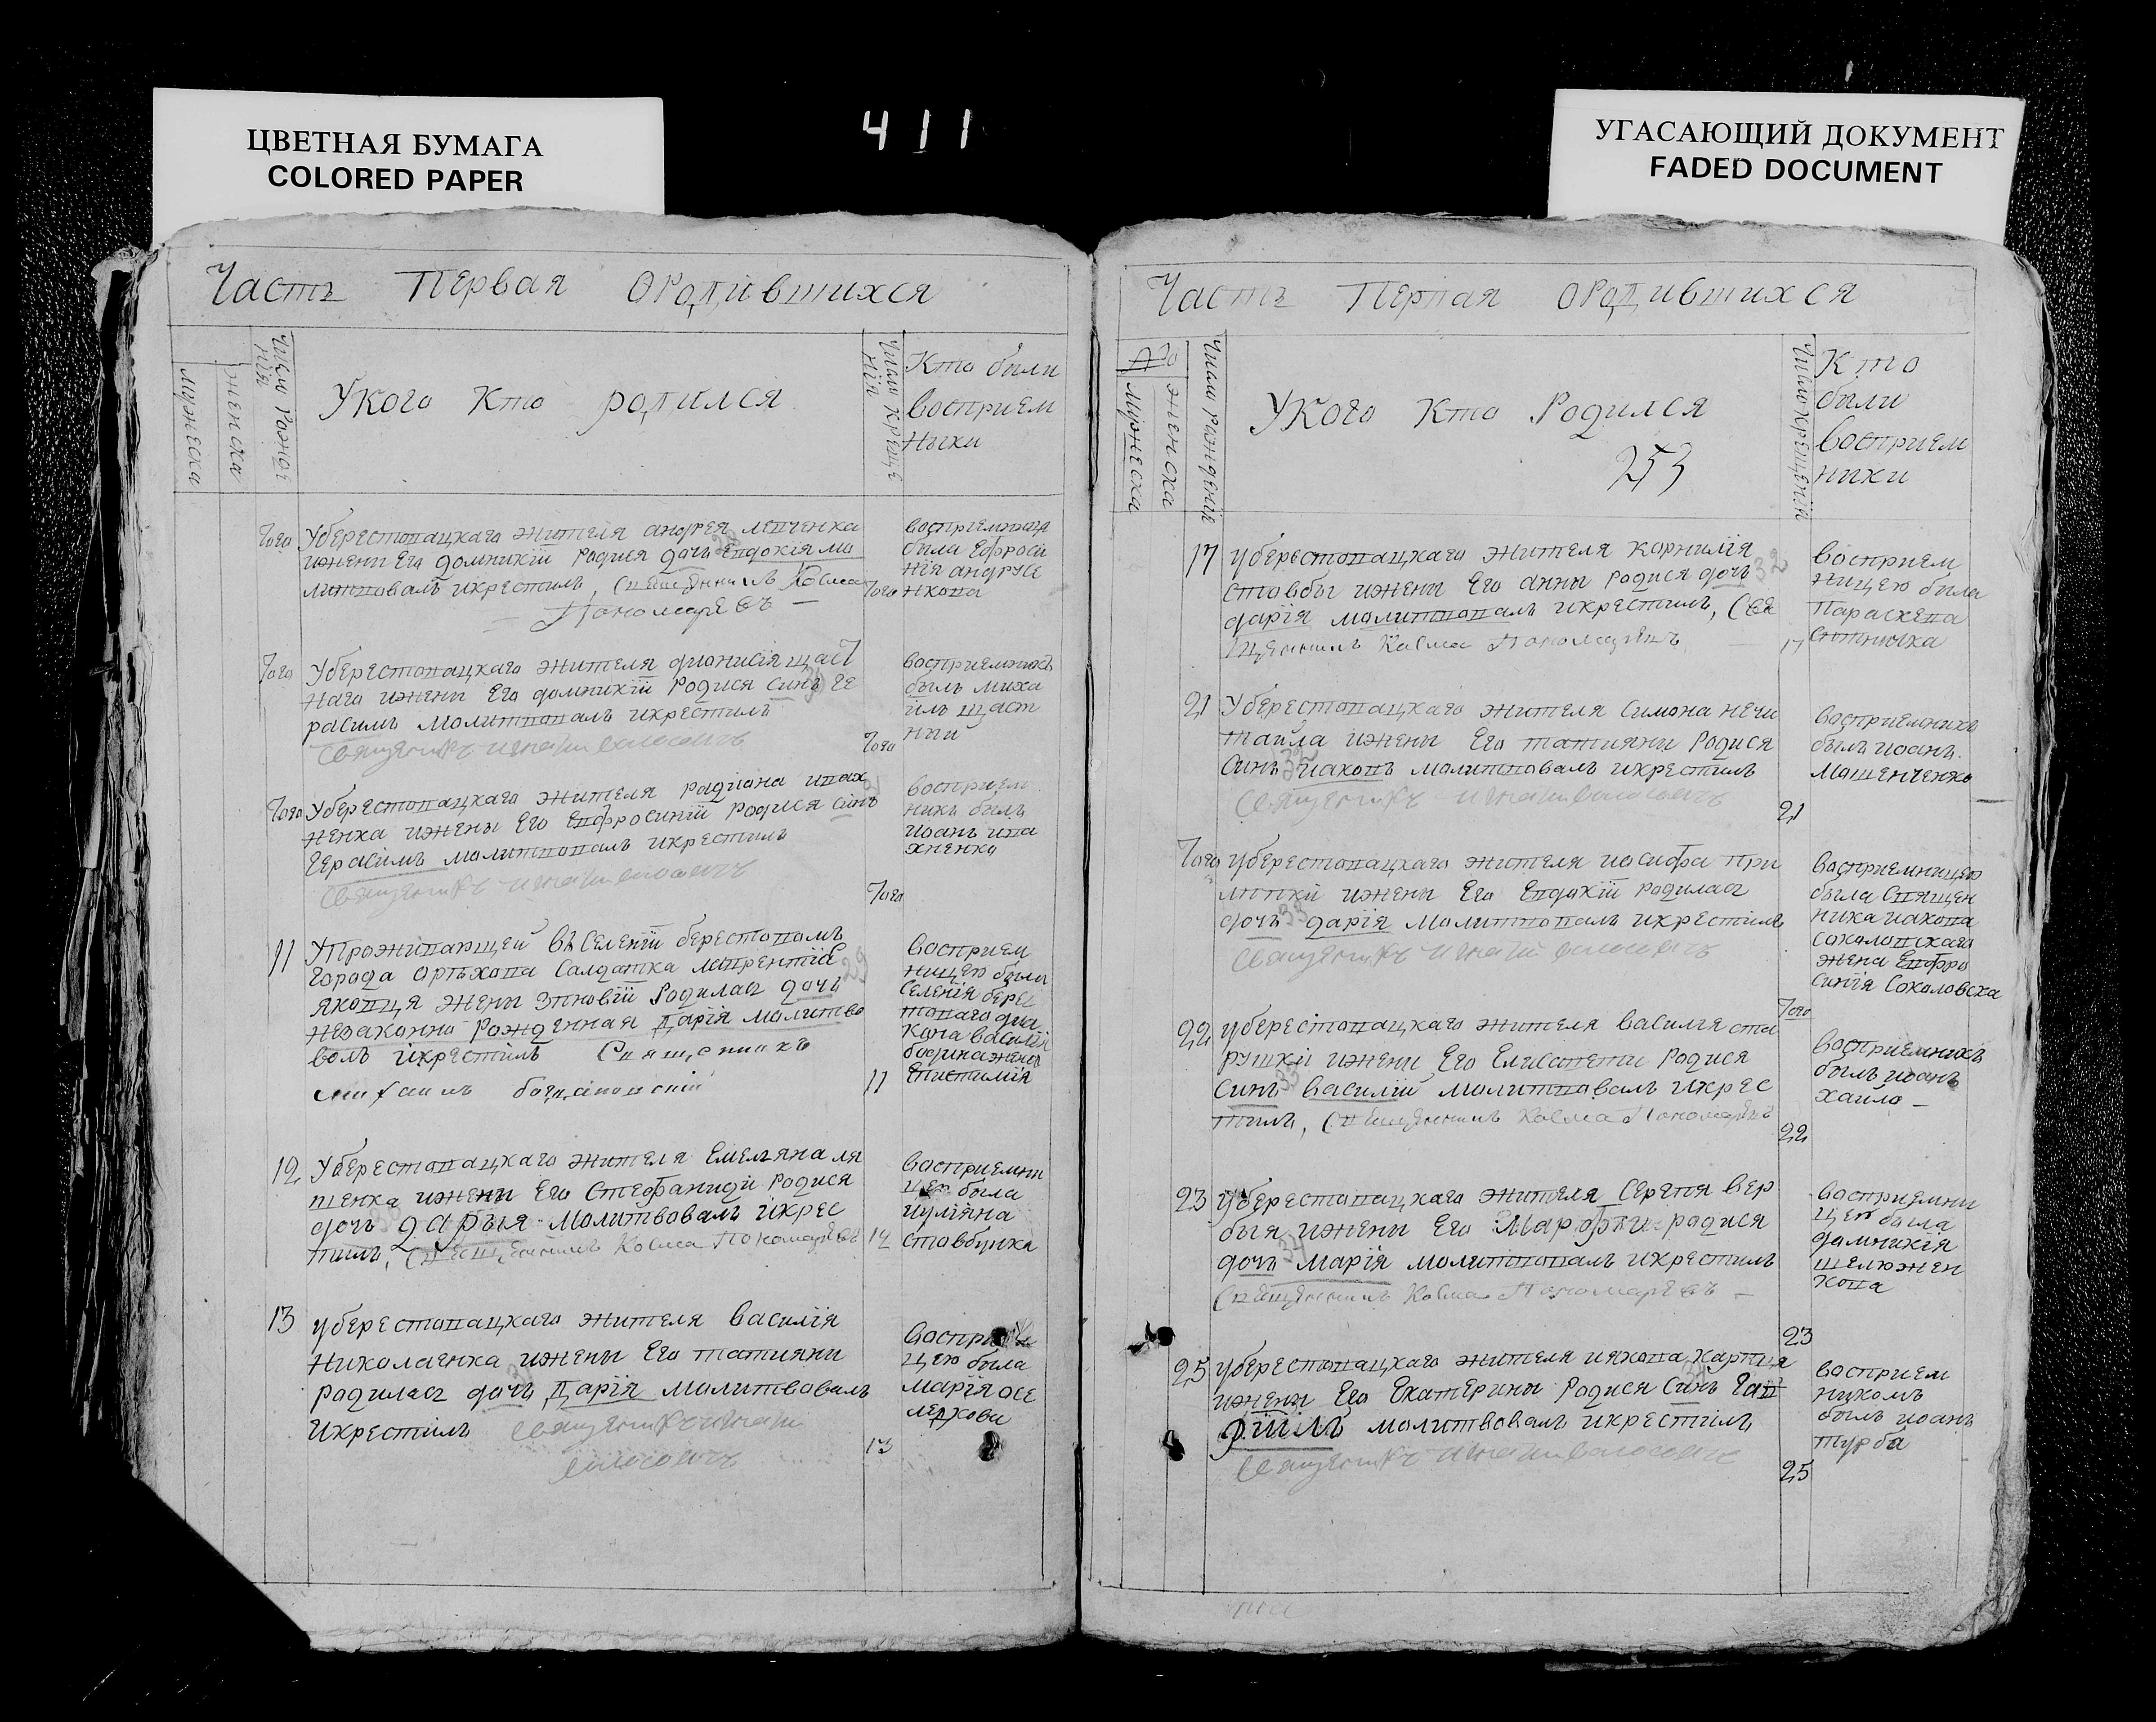 ЦВЕТНАЯ БУМАГА
COLORED PAPER
411
УГАСАЮЩИЙ ДОКУМЕНТ
FADED DOCUMENT
Часть Первая ородившихся
мужеска
женска
Числи рожде
нія
Укого Кто родился
Числи креще
нія
Кто были
восприем
ники
Того
Уберестовацкаго жителя андрея лепченка
ижени Его домникіи родися дочь Евдокія мо
литвовалъ икрестилъ, Священникъ Косма
Пономаревъ —
Того
восприемница
била Ефроси
нія андрусе
нкова
Того
Уберестовацкаго жителя дионисія щаст
наго ижени Его домникіи Родися синъ Ге
расимъ молитвовалъ икрестилъ
священникъ игнатий
Того
восприемникъ
былъ миха
илъ щаст
ний
Того
Уберестовацкаго жителя радиана ивах
ненка ижены Его Евфросиніи родися синъ
Герасимъ молитвовалъ икрестилъ
священникъ игнатий
Того
восприем
никъ былъ
иоанъ ива
хненко
11
Упроживающей въ Селеніи берестовомъ
города орѣхова Салдатка лаврентія
яковця жены зиновіи Родилась дочь 29
незаконно рожденная Дарія молитво
валъ икрестилъ Священникъ
михаилъ богдановский
11
восприем
ницею была
Селенія берес
товаго дья
кона василія
жена
Епистимія
12
Уберестовацкаго жителя Емельяна ля
шенка ижени Его Стефаниди Родися
дочь дарья молитвовалъ икрес
тилъ, Священникъ Косма Пономаревъ
12
восприемни
цею была
иуліяна
ставбунка
13
Уберестовацкаго жителя василія
Николаенка ижены Его татияни
родилась дочь Дарія молитвовалъ
Икрестилъ священникъ игнатий
13
цею была
марія осе
ледкова
Часть Первая ородившихся
No
мужеска
женска
Числи рожденія
Укого Кто Родился
253
Числи крещенія
Кто
были
восприем
ники
17
Уберестовацкаго жителя корнилія
стовбы ижены Его анны родися дочь 32
дарія молитвовалъ икрестилъ, Свя
щенникъ Косма Пономаревъ
17
восприем
ницею была
Параскева
21
Уберестовацкаго жителя Симона нечи
тайла ижени Его татияни Родися
Синъ иаковъ молитвовалъ икрестилъ
священникъ игнатий
21
восприемникъ
былъ иоанъ
Машенченко
Того
Уберестовацкаго жителя иосифа при
лѣпки ижени Его Евдокіи родилась
дочь 33 дарія молитвовалъ икрестилъ
священникъ игнатий
Того
восприемницею
была Священ
ника иакова
соколовскаго
жена Евфро
синія Соколовска
22
Уберестовацкаго жителя василія ста
рушки ижени Его Елисавети родися
синъ василій молитвовалъ икрес
тилъ, Священникъ Косма Пономаревъ
22
восприемникъ
былъ иоанъ
хаило —
23
Уберестовацкаго жителя Сергія вер
быя ижени Его Марфы родися
дочь 34 Марія молитвовалъ икрестилъ
Священникъ Косма Пономаревъ —
23
восприемни
цею была
домникія
шелюжен
кова
25
Уберестовацкаго жителя иякова карпця
ижени Его Екатерины родися Синъ Гав
риилъ молитвовалъ икрестилъ
священникъ игнатий
25
восприем
никомъ
былъ иоанъ
турба